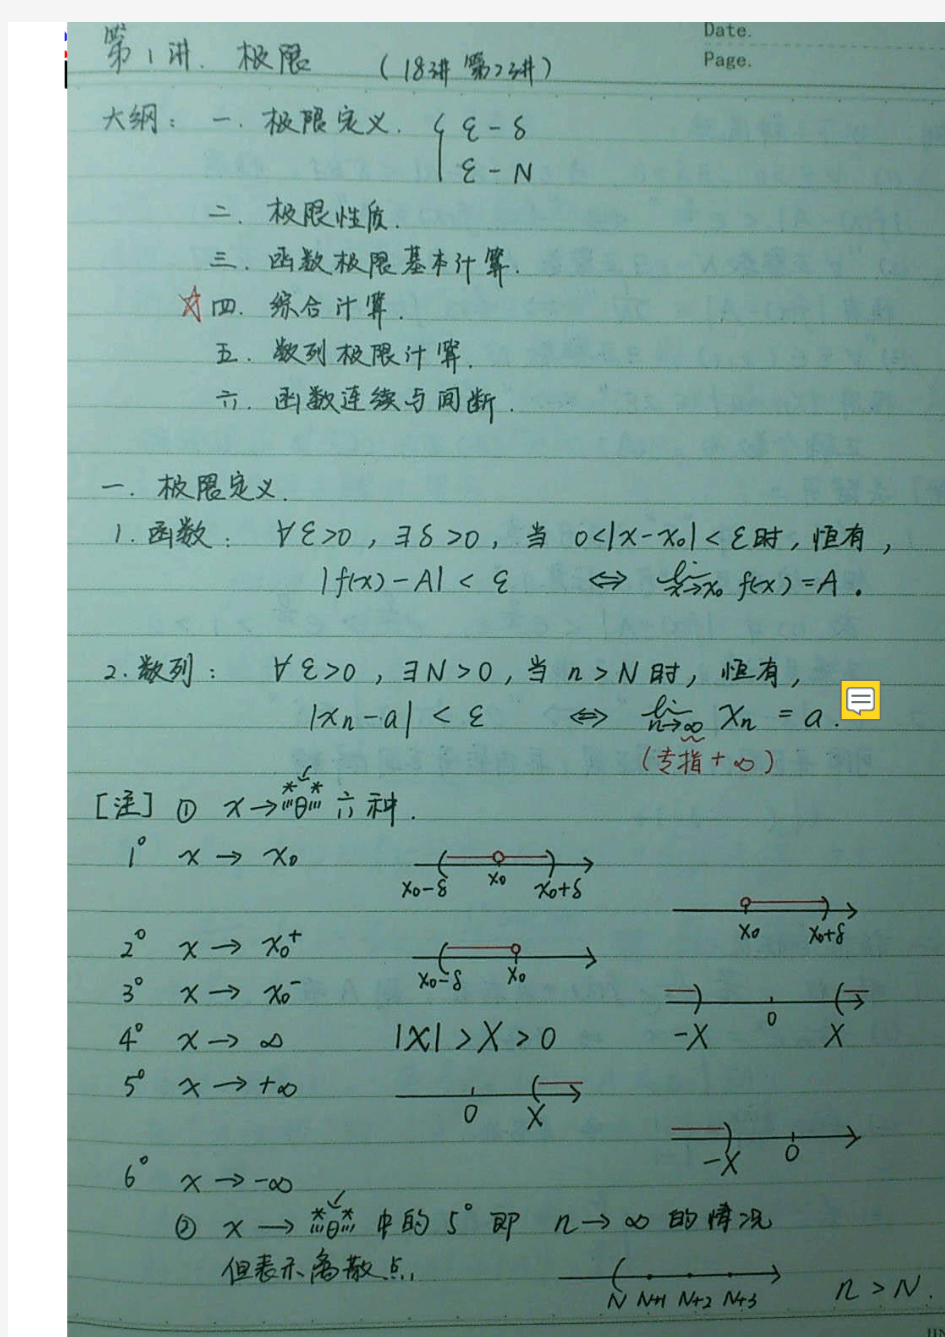 Date.
第1讲. 极限 (18讲 第2讲)
Page.
大纲: 一. 极限定义. { ε-δ
ε-N
二. 极限性质.
三. 函数极限基本计算.
☆四. 综合计算.
五. 数列极限计算.
六. 函数连续与间断.
一. 极限定义.
1. 函数: ∀ε>0, ∃δ>0, 当 0<|x-x₀|<ε时, 恒有,
|f(x)-A|<ε ⇔ lim x→x₀ f(x)=A.
2. 数列: ∀ε>0, ∃N>0, 当 n>N 时, 恒有,
|xn-a|<ε ⇔ lim n→∞ xn = a.
(专指+∞)
[注] ① x→ 六种.
1° x→x₀
x₀-δ x₀ x₀+δ
x₀ x₀+δ
2° x→x₀⁺
x₀-δ x₀
3° x→x₀⁻
-X 0 X
4° x→∞ |x|>X>0
5° x→+∞
0 X
-X 0
6° x→-∞
② x→ 中的5°即 n→∞的情况
但表示离散点,
N N+1 N+2 N+3 n>N.